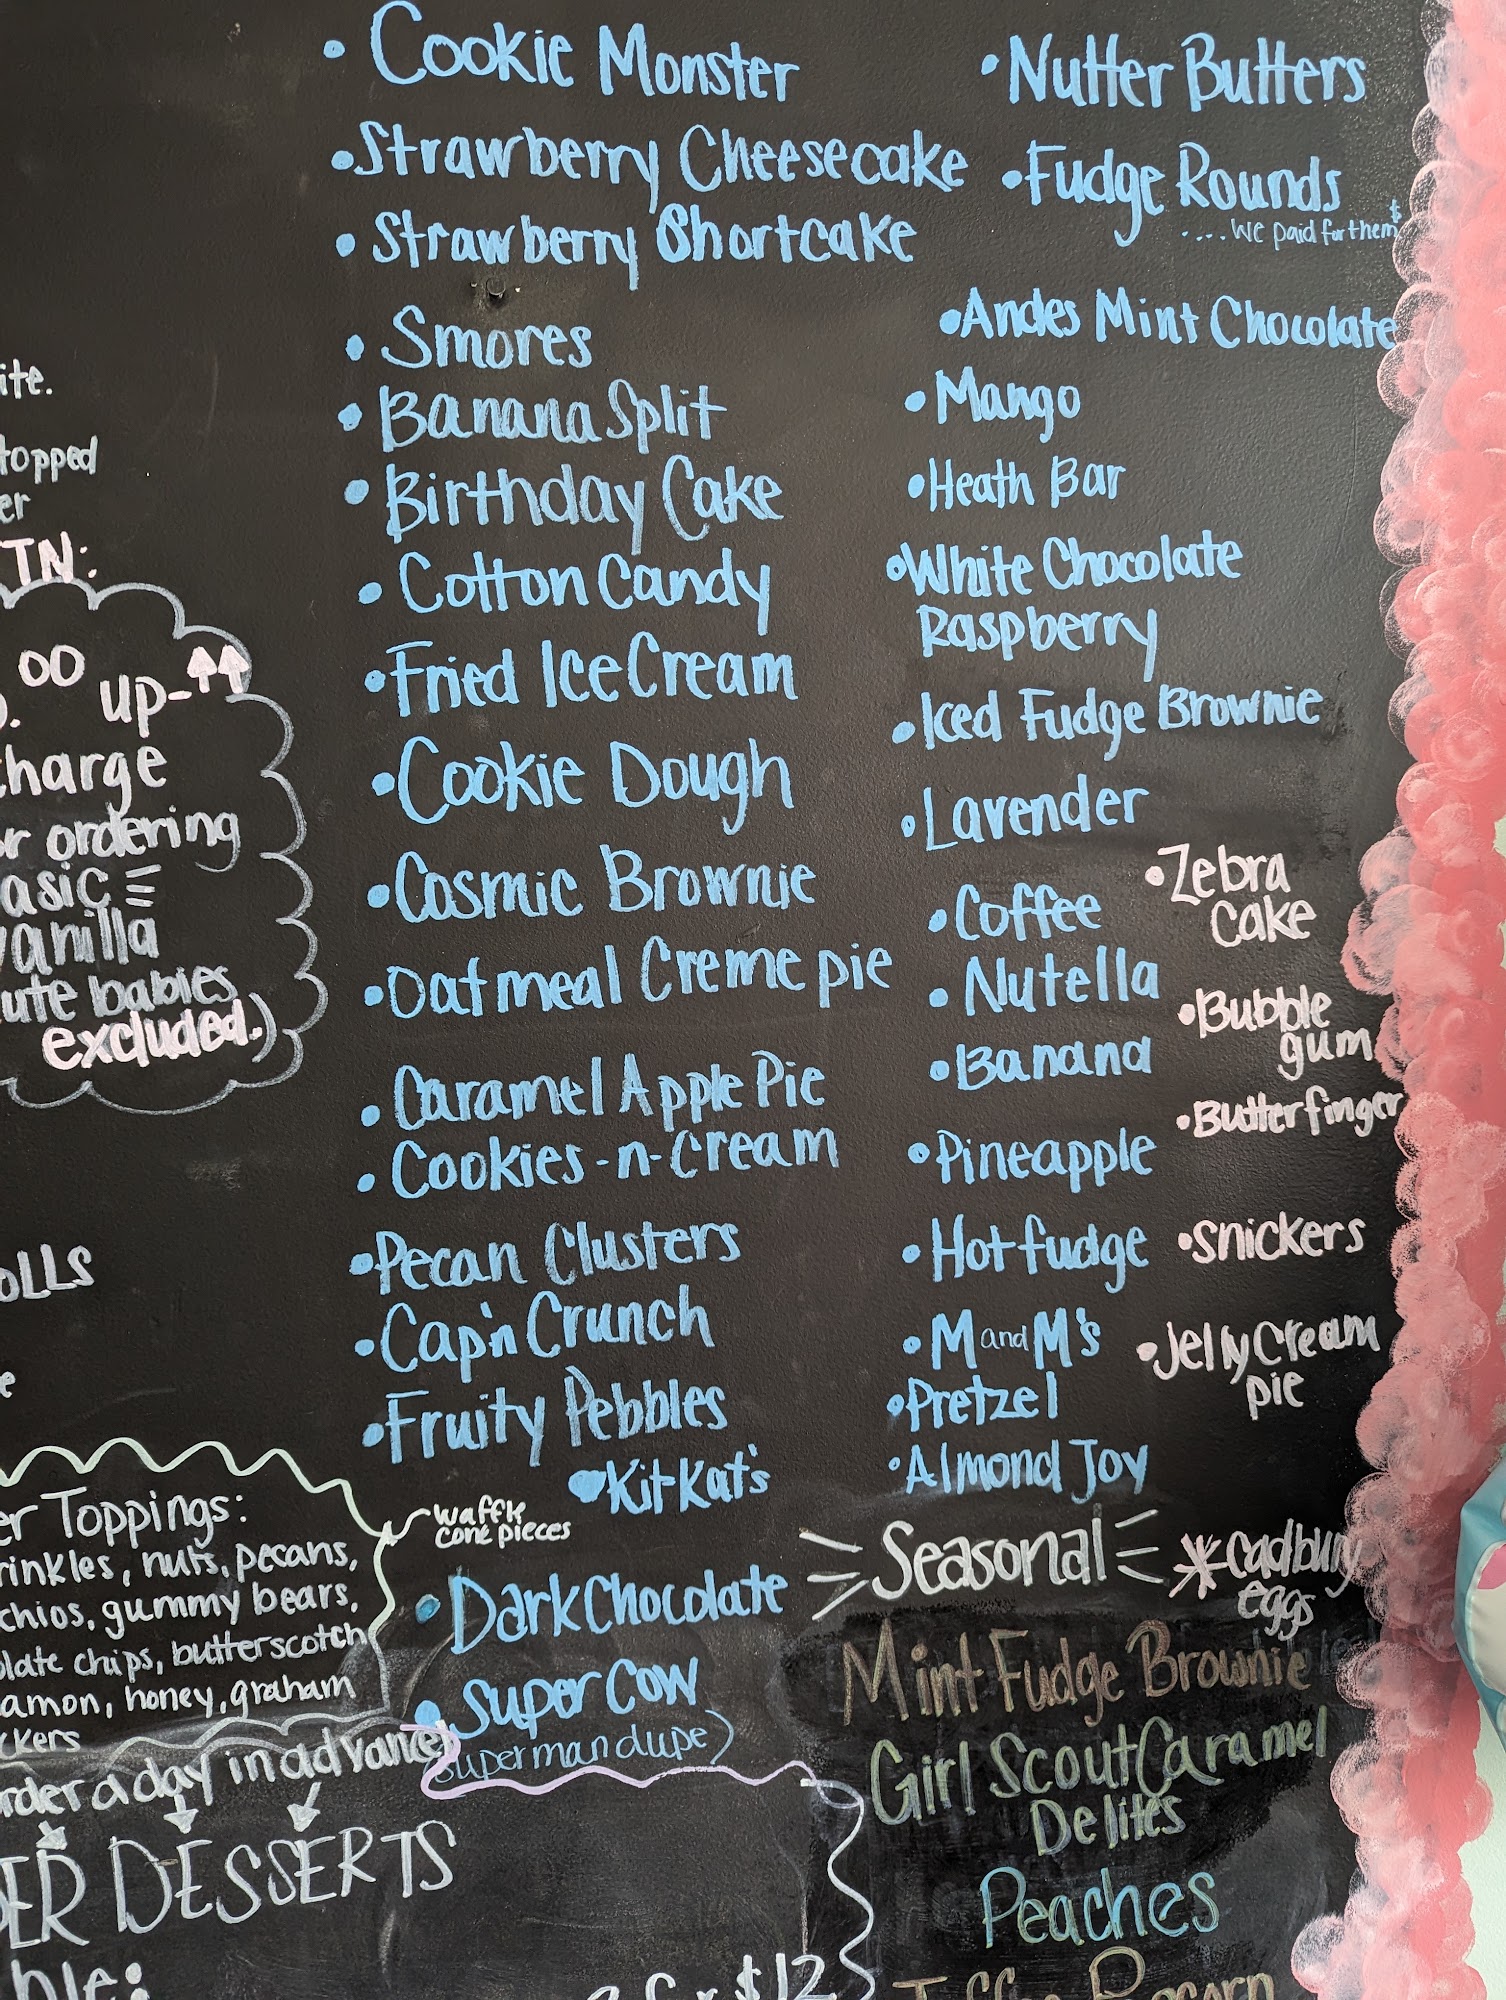 • Cookie Monster
• Strawberry Cheesecake
• Strawberry Shortcake
• Smores
• Banana Split
• Birthday Cake
• Cotton Candy
• Fried Ice Cream
• Cookie Dough
• Cosmic Brownie
• Oatmeal Creme pie
• Caramel Apple Pie
• Cookies-n-Cream
• Pecan Clusters
• Cap'n Crunch
• Fruity Pebbles
• KitKat's
• Dark Chocolate
• Super Cow
(superman dupe)
• Nutter Butters
• Fudge Rounds
$
....We paid for them
• Andes Mint Chocolate
• Mango
• Heath Bar
• White Chocolate
Raspberry
• Iced Fudge Brownie
• Lavender
• Coffee
• Nutella
• Banana
• Pineapple
• Hot fudge
• M and M's
• Pretzel
• Almond Joy
• Zebra
Cake
• Bubble
gum
• Butterfinger
• Snickers
• Jelly Cream
pie
Seasonal
* Cadbury
eggs
Mint Fudge Brownie
Girl Scout Caramel
Delites
Peaches
ite.
topped
er
TN:
00 up-
charge
or ordering
basic
vanilla
cute babies
excluded.)
OLLS
e
er Toppings:
rinkles, nuts, pecans,
chios, gummy bears,
olate chips, butterscotch
amon, honey, graham
ckers
waffle
cone pieces
order a day in advance
ER DESSERTS
ble:
$12